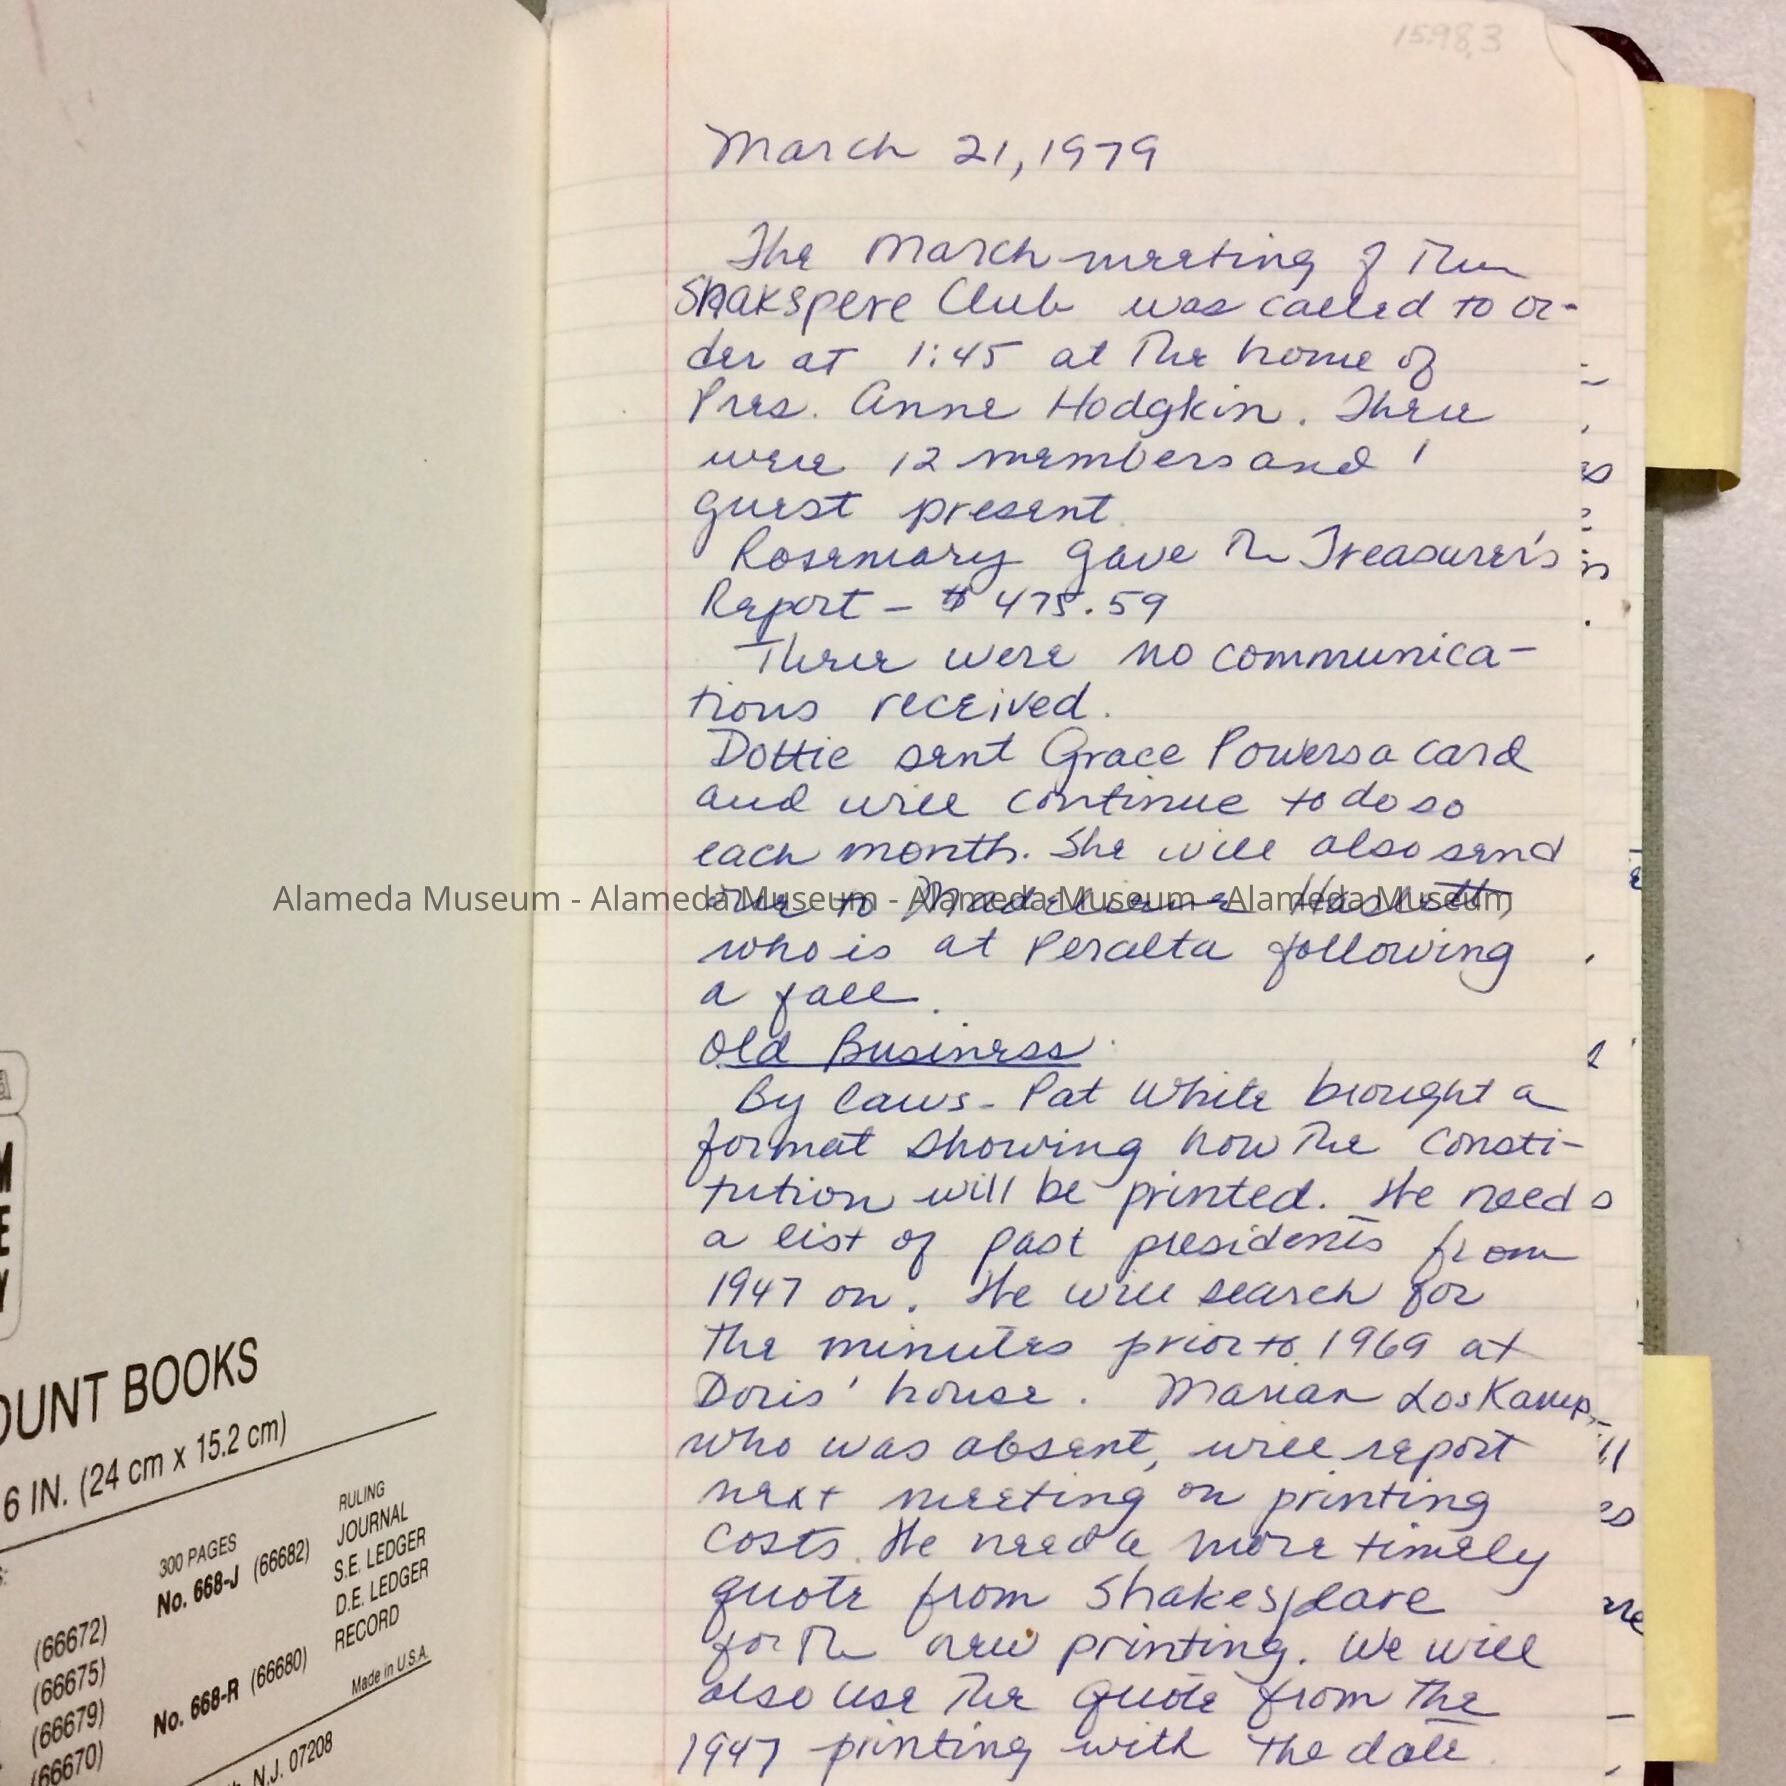 1598.3
March 21, 1979
The March meeting of the
Shakspere Club was called to or-
der at 1:45 at the home of
Pres. Anne Hodgkin. There
were 12 members and 1
guest present.
Rosemary gave the Treasurer's
Report - $475.59
There were no communica-
tions received.
Dottie sent Grace Powers a card
and will continue to do so
each month. She will also send
one to
Alameda Museum - Alameda Museum - Alameda Museum - Alameda Museum
who is at Peralta following
a fall.
Old Business
By Laws - Pat White brought a
format showing how the Consti-
tution will be printed. He needs
a list of past presidents from
1947 on. He will search for
the minutes prior to 1969 at
Doris' house. Marian LosKamp,
who was absent, will report
next meeting on printing
costs. We need a more timely
quote from Shakespeare
for the new printing. We will
also use the quote from the
1947 printing with the date.
OUNT BOOKS
6 IN. (24 cm x 15.2 cm)
300 PAGES
No. 668-J (66682)
No. 668-R (66680)
RULING
JOURNAL
S.E. LEDGER
D.E. LEDGER
RECORD
(66672)
(66675)
(66679)
(66670)
Made in U.S.A.
N.J. 07208